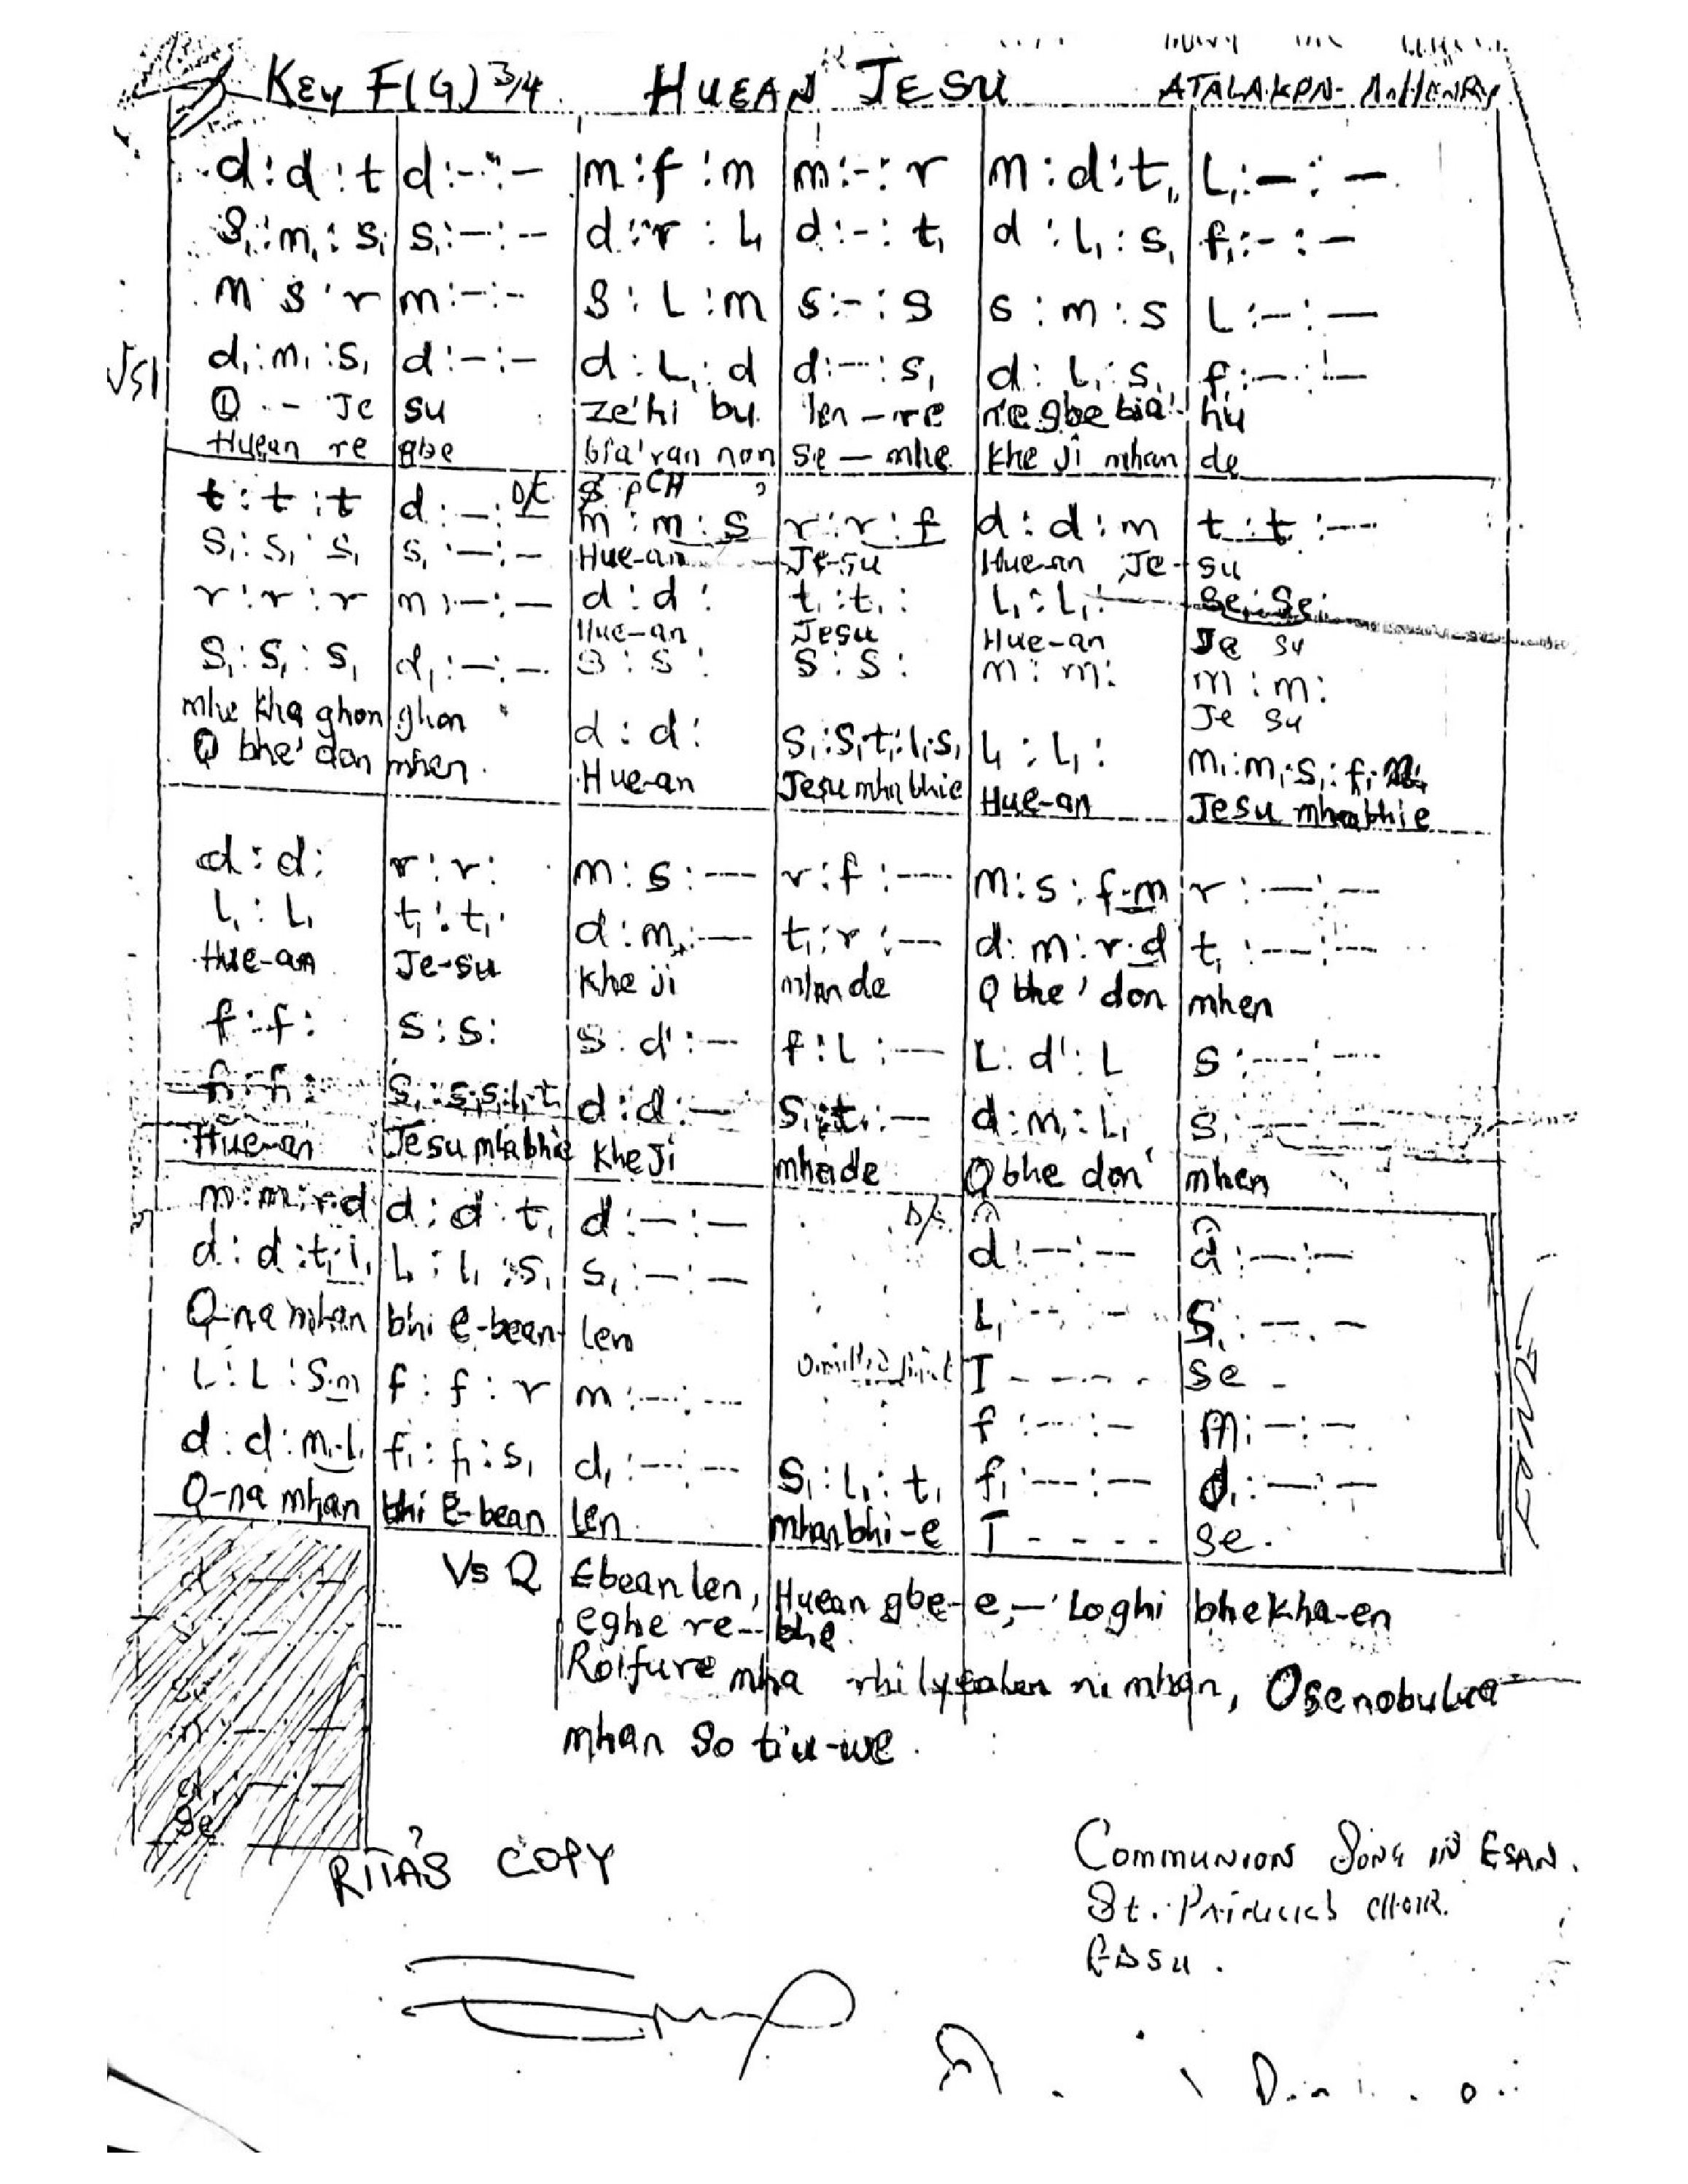 Key F(G) 3/4 HUEAN JESU ATALAKPN- A.HENRY
d : d : t | d : - : - | m : f : m | m : - : r | m : d : t, | L, : - : -
S, : m, : s, | s, : - : - | d : r : L, | d : - : t, | d : L, : s, | f, : - : -
m : s : r | m : - : - | S : L : m | s : - : s | s : m : s | L : - : -
Vs1 d, : m, : s, | d : - : - | d : L, : d | d : - : s, | d : L, : s, | f, : - : -
Ọ - Je su ze'hi bu len - re re gbe bia' hu
Huean re gbe bia'ran non se - mhe khe ji mhan de
t : t : t | d : - : - D/C | m : m : s | r : r : f | d : d : m | t : t : -
Hue-an Je-su Huean Je- su
S, : s, : s, | s, : - : -
r : r : r | m : - : - | d : d : | t, : t, : | L, : L, : | Se, : Se, :
Hue-an Jesu Hue-an Je su
S, : S, : s, | d, : - : - | s : s : | s : s : | m : m : | m : m :
Je su
mhe kha ghon ghon
Ọ bhe' don mhen.
d : d : | S, : S, t, : l, s, | L, : L, : | m, : m, s, : f,
Hue-an Jesu mha bhie Hue-an Jesu mha bhie
d : d : | r : r : | m : s : - | r : f : - | m : s : f.m | r : - : -
L, : L, | t, : t, : | d : m : - | t, : r : - | d : m : r.d | t, : - : -
Hue-an Je-su khe ji mhan de Ọ bhe' don mhen
f : f : | s : s : | s : d' : - | f : L : - | L : d' : L | s : - : -
f, : f, : | S, : s, s, : l, t, | d : d : - | S, : t, : - | d : m, : L, | S, : - : -
Hue-an Jesu mha bhie khe Ji mhan de Ọ bhe don' mhen
m : m : r.d | d : d : t, | d : - : - | D/S | d : - : - | d : - : -
d : d : t, l, | L, : l, : s, | s, : - : - | L, : - : - | S, : - : -
Ọ-na mhan bhi e-bean- len I - - - - se -
L : L : S.m | f : f : r | m : - : - | f : - : - | m : - : -
d : d : m, L, | f, : f, : s, | d, : - : - | S, : L, : t, | f, : - : - | d, : - : -
Ọ-na mhan bhi E-bean len mhan bhi-e I - - - - se.
Vs 2 Ebean len, Huean gbe- e, - 'Loghi bhe kha-en
eghe re - bhe
Roifure mha nimhan, Osenobulua
mhan so tiu-we.
RITA'S COPY
COMMUNION SONG IN ESAN.
St. Patrick's CHOIR.
EDSU.